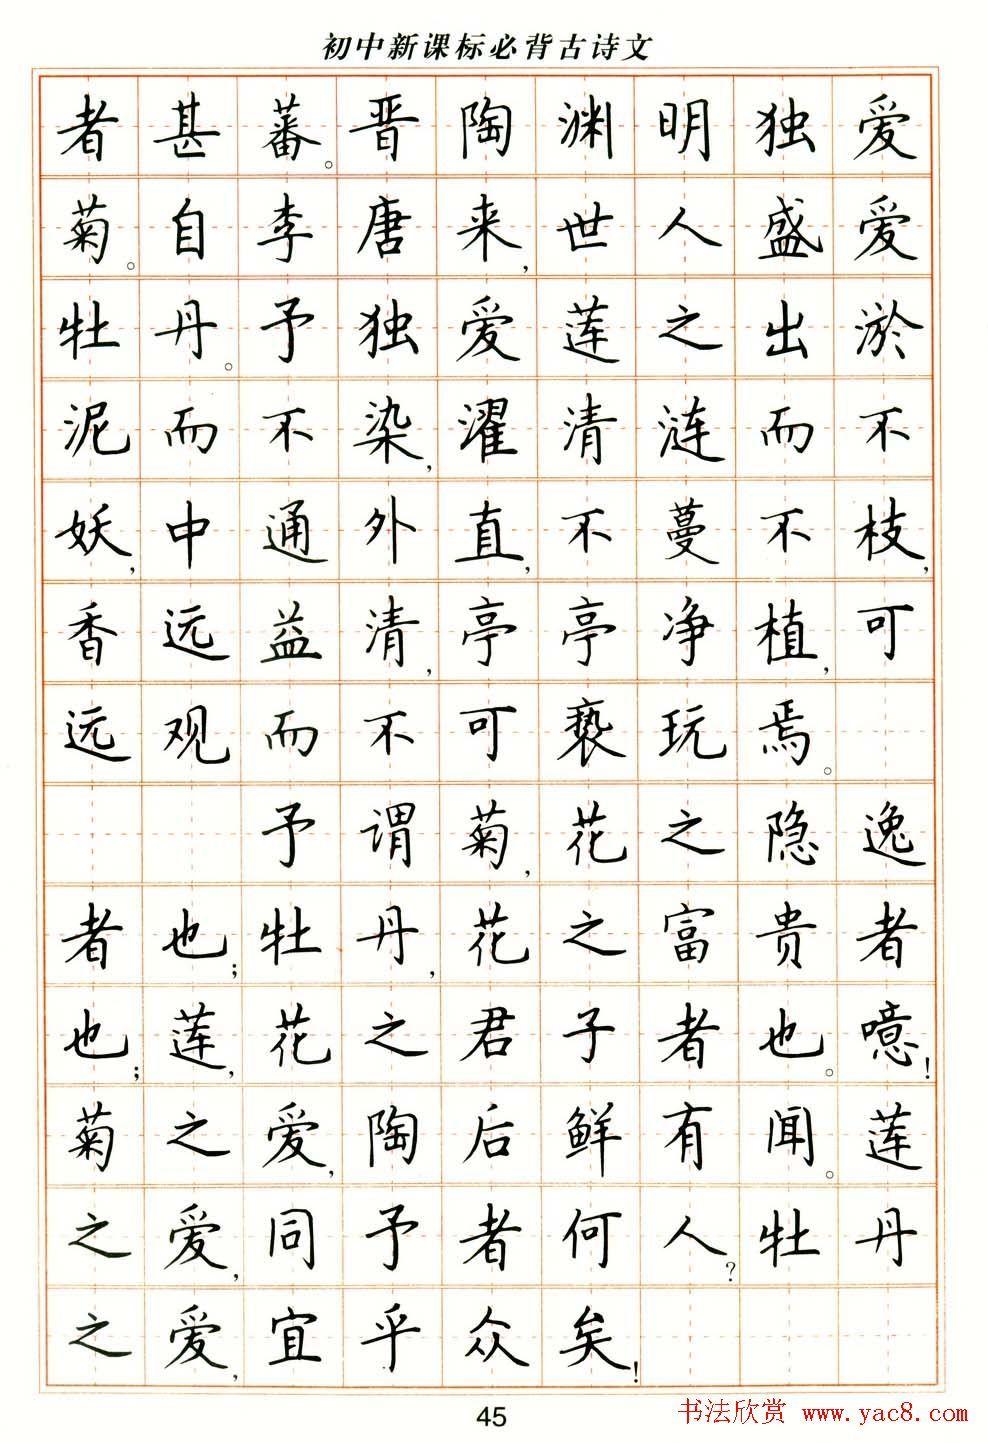 初中新课标必背古诗文
者甚蕃。晋陶渊明独爱
菊。自李唐来,世人盛爱
牡丹。予独爱莲之出淤
泥而不染,濯清涟而不
妖,中通外直,不蔓不枝,
香远益清,亭亭净植,可
远观而不可亵玩焉。
予谓菊,花之隐逸
者也;牡丹,花之富贵者
也;莲,花之君子者也。噫!
菊之爱,陶后鲜有闻。莲
之爱,同予者何人?牡丹
之爱,宜乎众矣!
45
书法欣赏 www.yac8.com